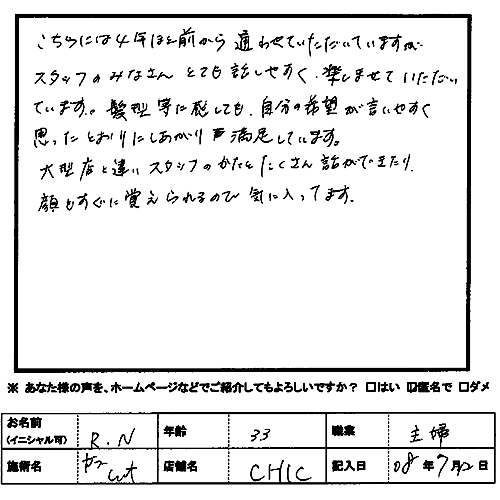 こちらには4年ほど前から 通わせていただいていますが
スタッフのみなさん とても話しやすく、楽しませていただい
ています。髪型等に感しても、自分の希望が言いやすく
思ったとおりにしあがり 満足しています。
大型店と違い スタッフのかたとたくさん話ができたり、
顔もすぐに覚えられるので 気に入ってます。
※ あなた様の声を、ホームページなどでご紹介してもよろしいですか? □はい ☑匿名で □ダメ
お名前 (イニシャル可) R.N 年齢 33 職業 主婦
施術名 cut 店舗名 CHIC 記入日 '08年7月2日